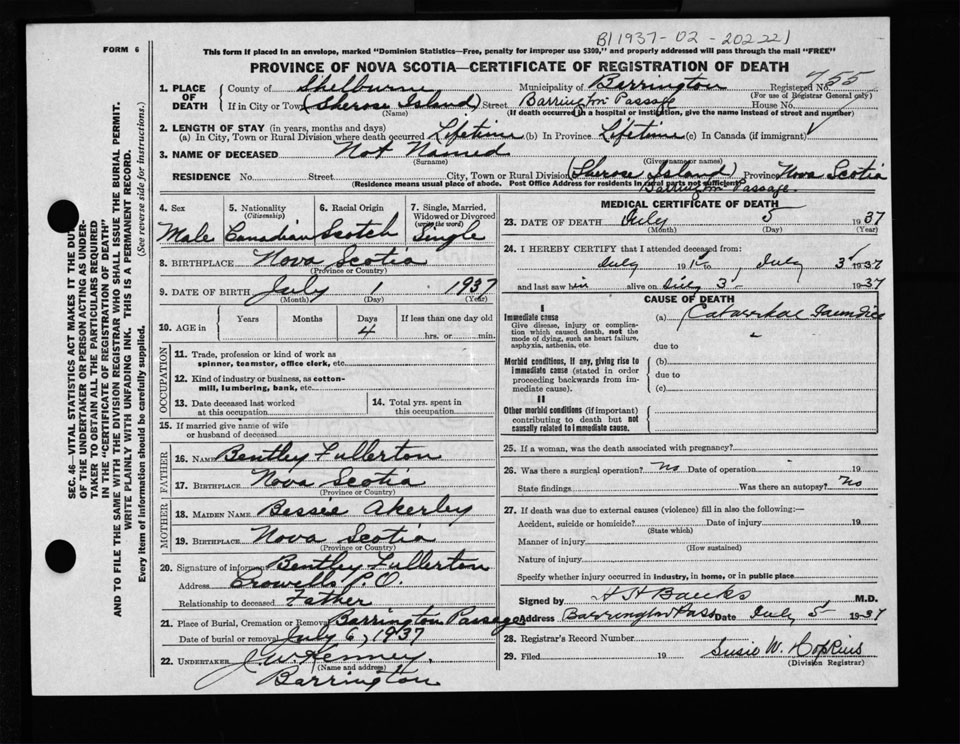 B/1937-02-202221
FORM 6
This form if placed in an envelope, marked "Dominion Statistics—Free, penalty for improper use $300," and properly addressed will pass through the mail "FREE"
PROVINCE OF NOVA SCOTIA—CERTIFICATE OF REGISTRATION OF DEATH
1. PLACE OF DEATH
County of Shelburne Municipality of Barrington Registered No. 755
(For use of Registrar General only)
If in City or Town (Sherose Island) Street Barrington Passage House No.
(Name) (If death occurred in a hospital or institution, give the name instead of street and number)
2. LENGTH OF STAY (in years, months and days)
(a) In City, Town or Rural Division where death occurred Lifetime (b) In Province Lifetime (c) In Canada (if immigrant)
3. NAME OF DECEASED Not Named
(Surname) (Given name or names)
RESIDENCE No. Street City, Town or Rural Division (Sherose Island) Province Nova Scotia
(Residence means usual place of abode. Post Office Address for residents in rural parts not sufficient)
Barrington Passage
4. Sex Male
5. Nationality (Citizenship) Canadian
6. Racial Origin Scotch
7. Single, Married, Widowed or Divorced (write the word) Single
8. BIRTHPLACE Nova Scotia
(Province or Country)
9. DATE OF BIRTH July 1 1937
(Month) (Day) (Year)
10. AGE in Years Months Days 4 If less than one day old
hrs. or min.
OCCUPATION
11. Trade, profession or kind of work as
spinner, teamster, office clerk, etc.
12. Kind of industry or business, as cotton-
mill, lumbering, bank, etc.
13. Date deceased last worked at this occupation
14. Total yrs. spent in this occupation
15. If married give name of wife
or husband of deceased
FATHER
16. NAME Bentley Fullerton
17. BIRTHPLACE Nova Scotia
(Province or Country)
MOTHER
18. MAIDEN NAME Bessie Akerley
19. BIRTHPLACE Nova Scotia
(Province or Country)
20. Signature of informant Bentley Fullerton
Address Crowells P.O.
Relationship to deceased Father
21. Place of Burial, Cremation or Removal Barrington Passage
Date of burial or removal July 6, 1937
22. UNDERTAKER J. W. Kenney,
(Name and address)
Barrington
MEDICAL CERTIFICATE OF DEATH
23. DATE OF DEATH July 5 1937
(Month) (Day) (Year)
24. I HEREBY CERTIFY that I attended deceased from:
July 1st 19 to July 3 1937
and last saw him alive on July 3 1937
CAUSE OF DEATH
I
Immediate cause
Give disease, injury or complication which caused death, not the mode of dying, such as heart failure, asphyxia, asthenia, etc.
(a) Catarrhal Jaundice
due to
Morbid conditions, if any, giving rise to immediate cause (stated in order proceeding backwards from immediate cause).
(b)
due to
(c)
II
Other morbid conditions (if important) contributing to death but not causally related to immediate cause.
25. If a woman, was the death associated with pregnancy?
26. Was there a surgical operation? No Date of operation 19
State findings Was there an autopsy? No
27. If death was due to external causes (violence) fill in also the following:—
Accident, suicide or homicide? Date of injury 19
(State which)
Manner of injury
(How sustained)
Nature of injury
Specify whether injury occurred in industry, in home, or in public place
Signed by H H Banks M.D.
Address Barrington Pass Date July 5 1937
28. Registrar's Record Number
29. Filed 19 Susie W. Hopkins
(Division Registrar)
SEC. 46—VITAL STATISTICS ACT MAKES IT THE DUTY
OF THE UNDERTAKER OR PERSON ACTING AS UNDER-
TAKER TO OBTAIN ALL THE PARTICULARS REQUIRED
IN THE "CERTIFICATE OF REGISTRATION OF DEATH"
AND TO FILE THE SAME WITH THE DIVISION REGISTRAR WHO SHALL ISSUE THE BURIAL PERMIT.
WRITE PLAINLY WITH UNFADING INK. THIS IS A PERMANENT RECORD.
Every item of information should be carefully supplied. (See reverse side for instructions.)